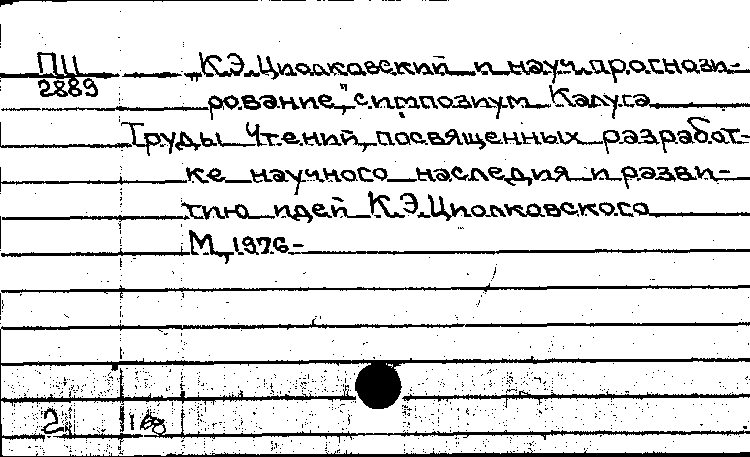 ПЦ
2889
„К.Э.Циолковский и науч.прогнози-
рование", симпозиум. Калуга
Труды Чтений, посвященных разработ-
ке научного наследия и разви-
тию идей К.Э.Циолковского
М., 1976-
2